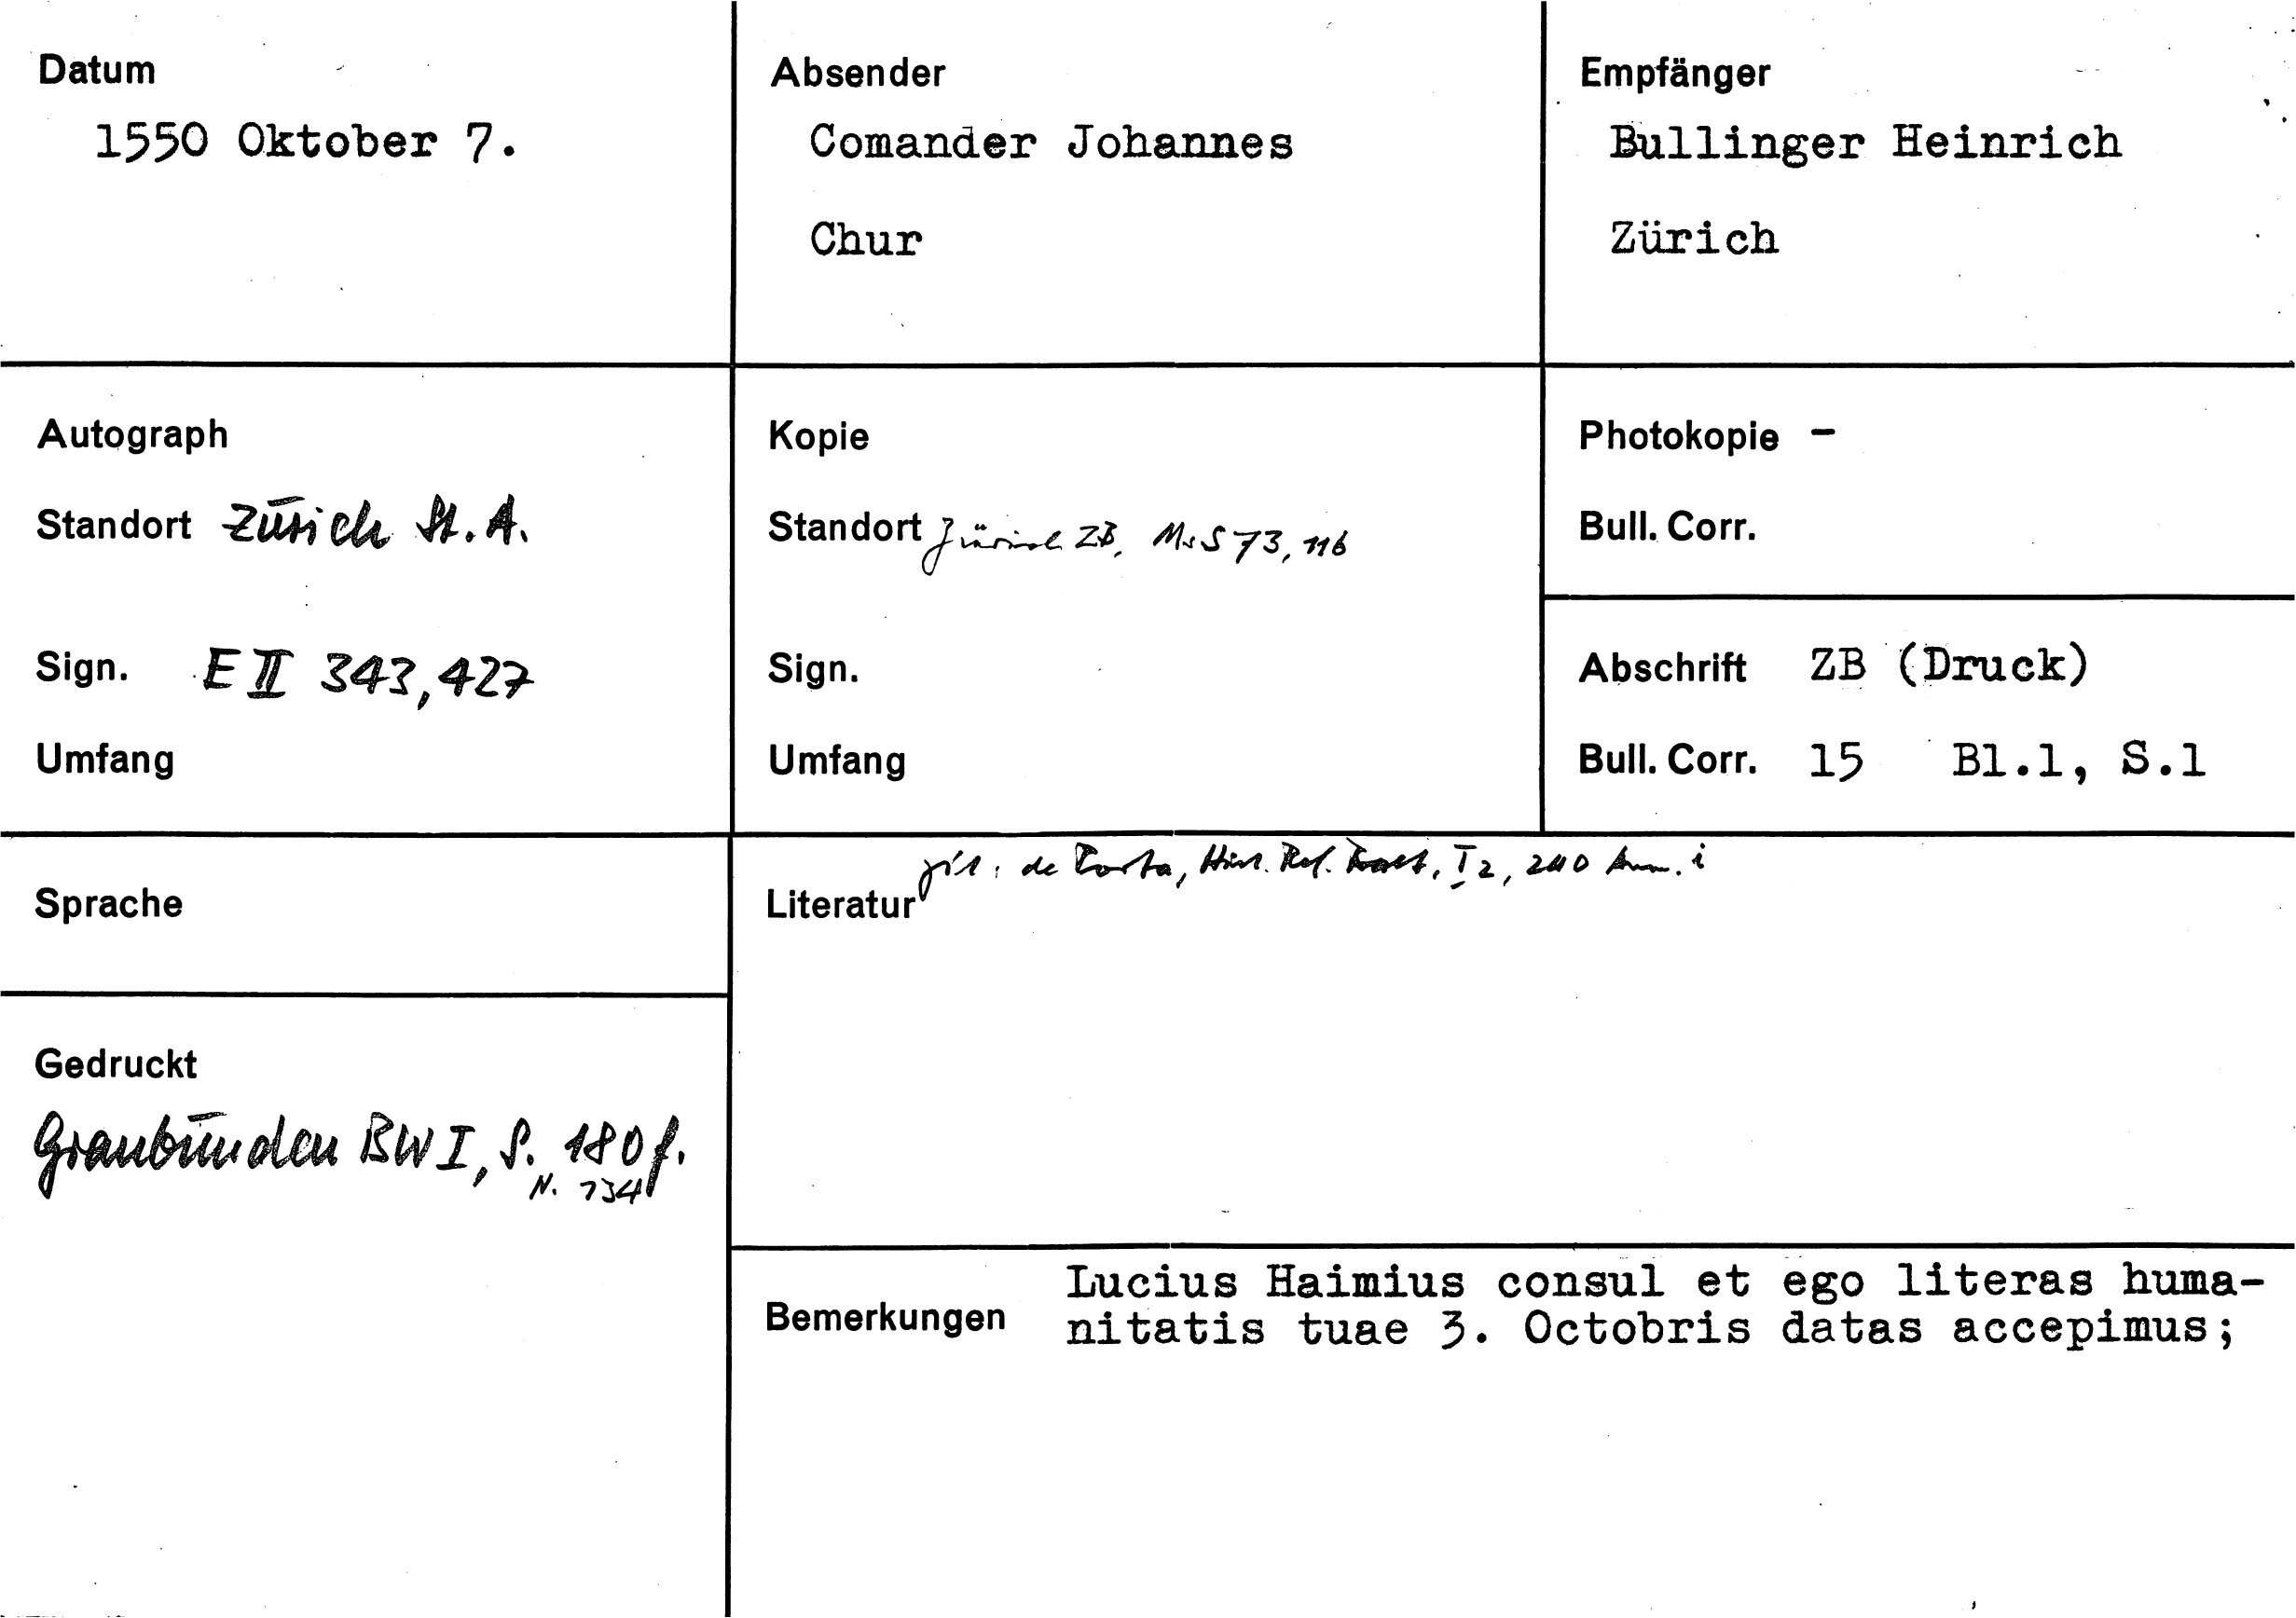 Datum
1550 Oktober 7.
Absender
Comander Johannes
Chur
Empfänger
Bullinger Heinrich
Zürich
Autograph
Standort Zürich St. A.
Sign. E II 343, 427
Umfang
Kopie
Standort Zürich ZB, Ms S 73, 116
Sign.
Umfang
Photokopie -
Bull. Corr.
Abschrift ZB (Druck)
Bull. Corr. 15 Bl.1, S.1
Sprache
Gedruckt
Graubünden BW I, S. 180 f.
N. 134
zit: de Porta, Hist. Ref. Raet, I 2, 240 Anm. i
Literatur
Bemerkungen
Lucius Haimius consul et ego literas huma-
nitatis tuae 3. Octobris datas accepimus;